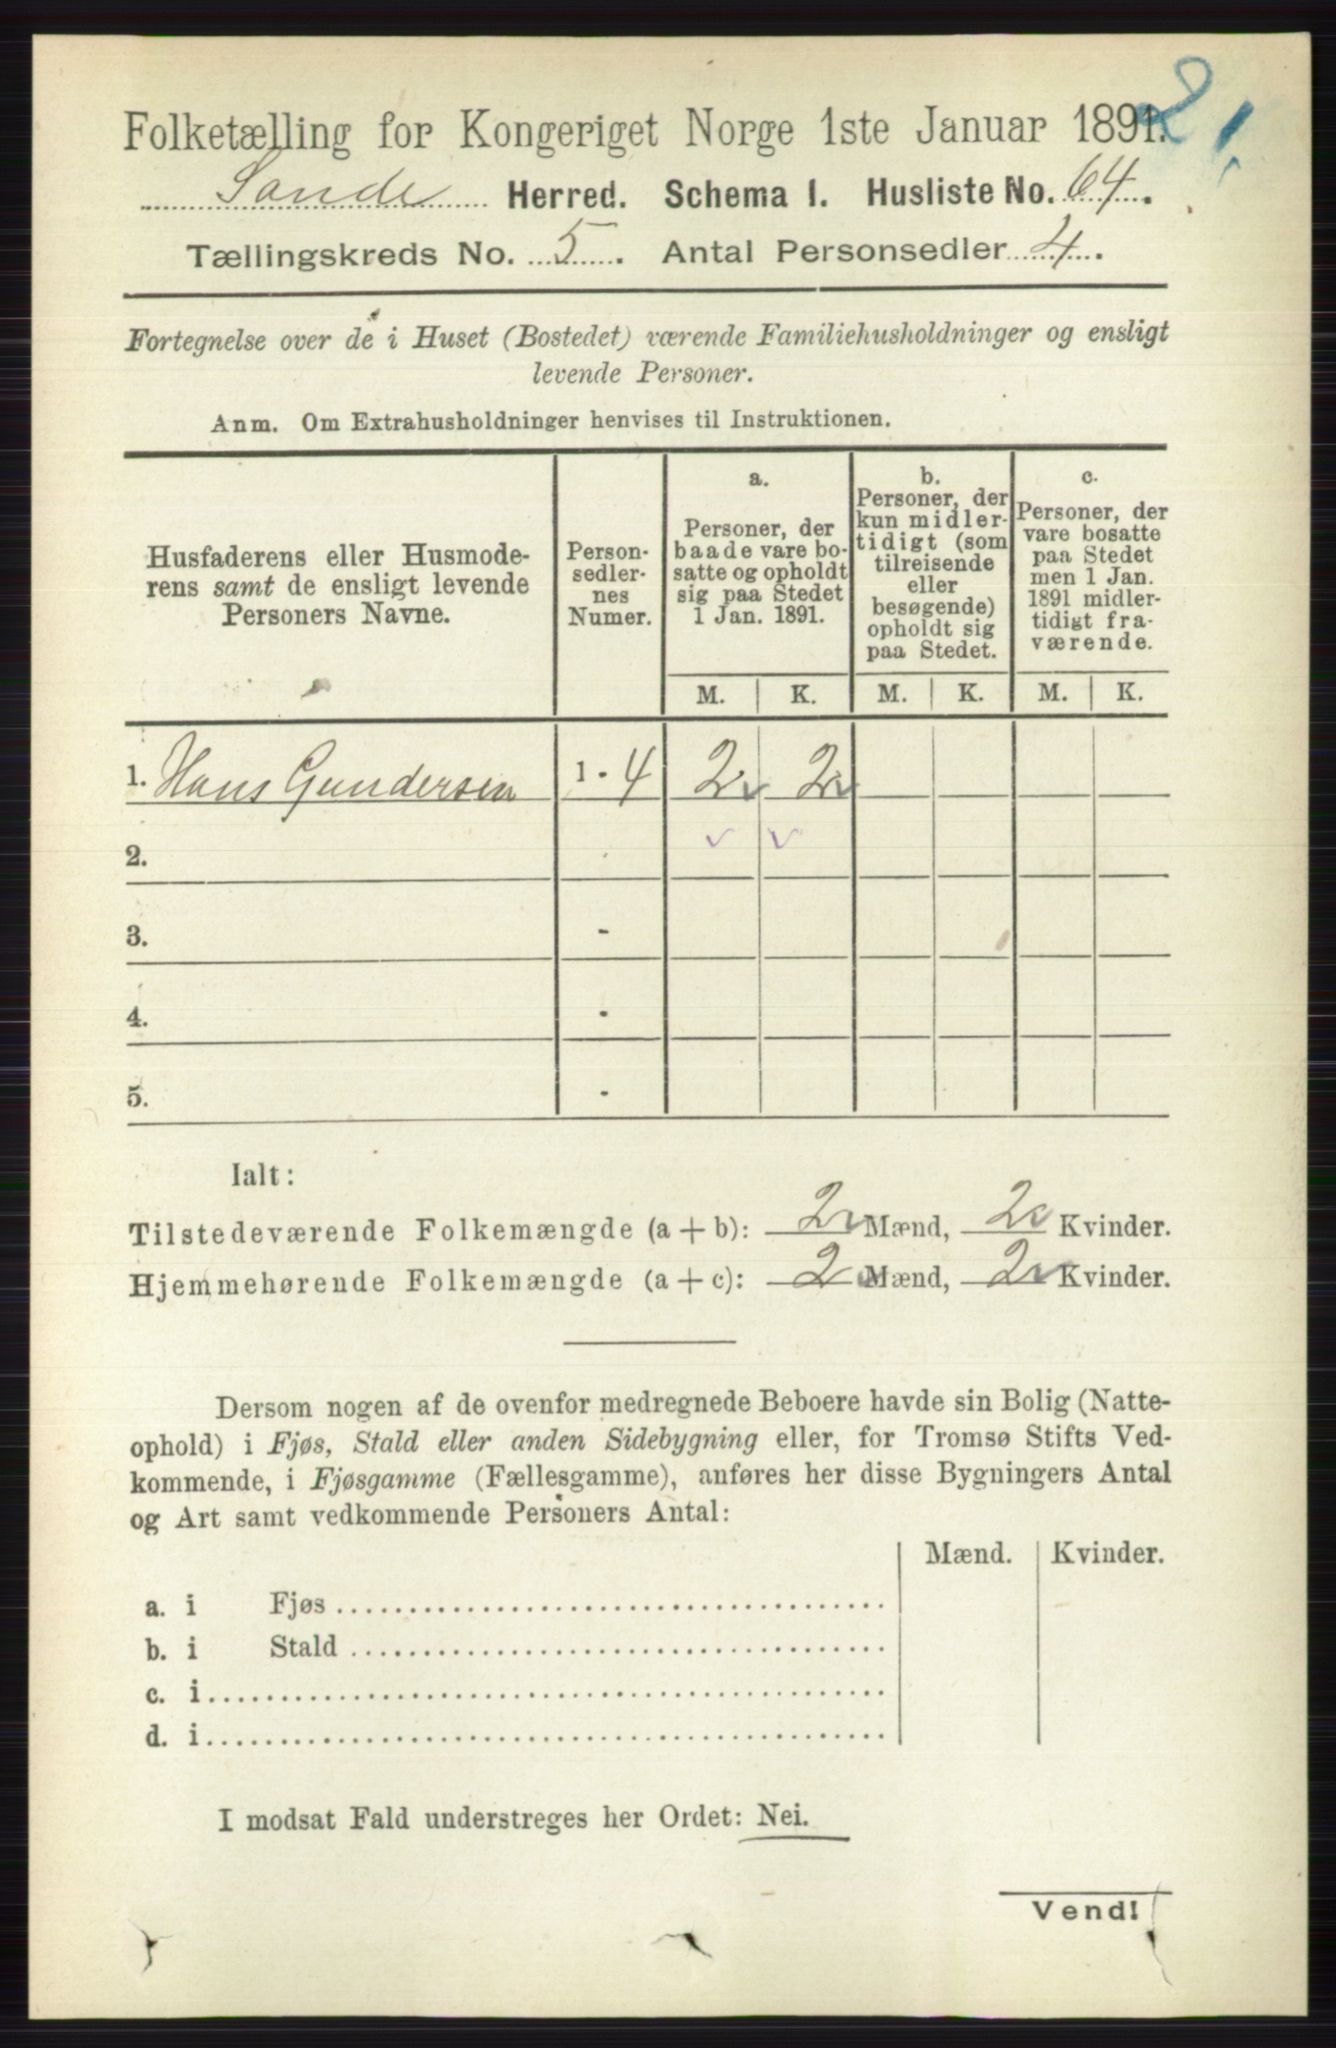 Folketælling for Kongeriget Norge 1ste Januar 1891.
Sande Herred. Schema I. Husliste No. 64.
Tællingskreds No. 5. Antal Personsedler 4.
Fortegnelse over de i Huset (Bostedet) værende Familiehusholdninger og ensligt
levende Personer.
Anm. Om Extrahusholdninger henvises til Instruktionen.
Husfaderens eller Husmode-
rens samt de ensligt levende
Personers Navne.
Person-
sedler-
nes
Numer.
a.
Personer, der
baade vare bo-
satte og opholdt
sig paa Stedet
1 Jan. 1891.
b.
Personer, der
kun midler-
tidigt (som
tilreisende
eller
besøgende)
opholdt sig
paa Stedet.
c.
Personer, der
vare bosatte
paa Stedet
men 1 Jan.
1891 midler-
tidigt fra-
værende.
M. K. M. K. M. K.
1. Hans Gundersen 1 - 4 2 2
2.
3. -
4. -
5. -
Ialt:
Tilstedeværende Folkemængde (a + b): 2 Mænd, 2 Kvinder.
Hjemmehørende Folkemængde (a + c): 2 Mænd, 2 Kvinder.
Dersom nogen af de ovenfor medregnede Beboere havde sin Bolig (Natte-
ophold) i Fjøs, Stald eller anden Sidebygning eller, for Tromsø Stifts Ved-
kommende, i Fjøsgamme (Fællesgamme), anføres her disse Bygningers Antal
og Art samt vedkommende Personers Antal:
Mænd. Kvinder.
a. i Fjøs
b. i Stald
c. i
d. i
I modsat Fald understreges her Ordet: Nei.
Vend!